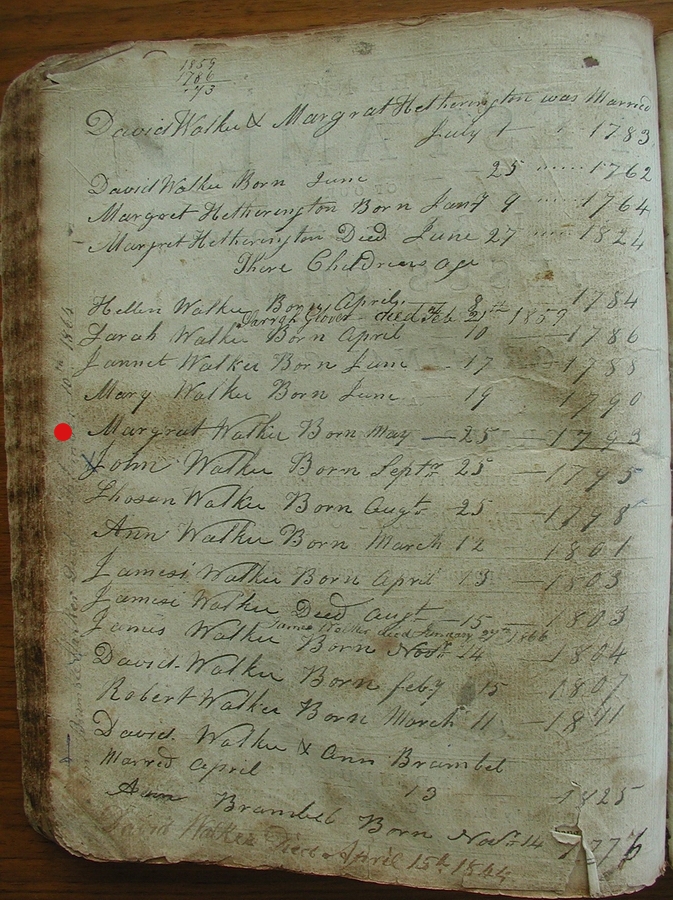 1859
1786
73
David Walker & Margrat Hetherington was Married
July 1 1783
David Walker Born June 25 1762
Margret Hetherington Born Jany 9 1764
Margret Hetherington Died June 27 1824
There Childrens age
Hellen Walker Born April 8 1784
Sarrah Glover died Feb 21th 1859
Sarah Walker Born April 10 1786
Jannet Walker Born June 17 1788
Mary Walker Born June 19 1790
Margrat Walker Born May 25 1793
John Walker Born Septr 25 1795
Walker Born Augt 25 1798
Ann Walker Born March 12 1801
James Walker Born April 13 1803
James Walker Died Augt 15 1803
James Walker died January 27th 1866
James Walker Born Novr 14 1804
David Walker Born feby 15 1807
Robert Walker Born March 11 1811
David Walker & Ann Brambel
Marred April 13 1825
Ann Brambel Born Novr 14 177
David Walker Died April 15th 1864
10th 1864